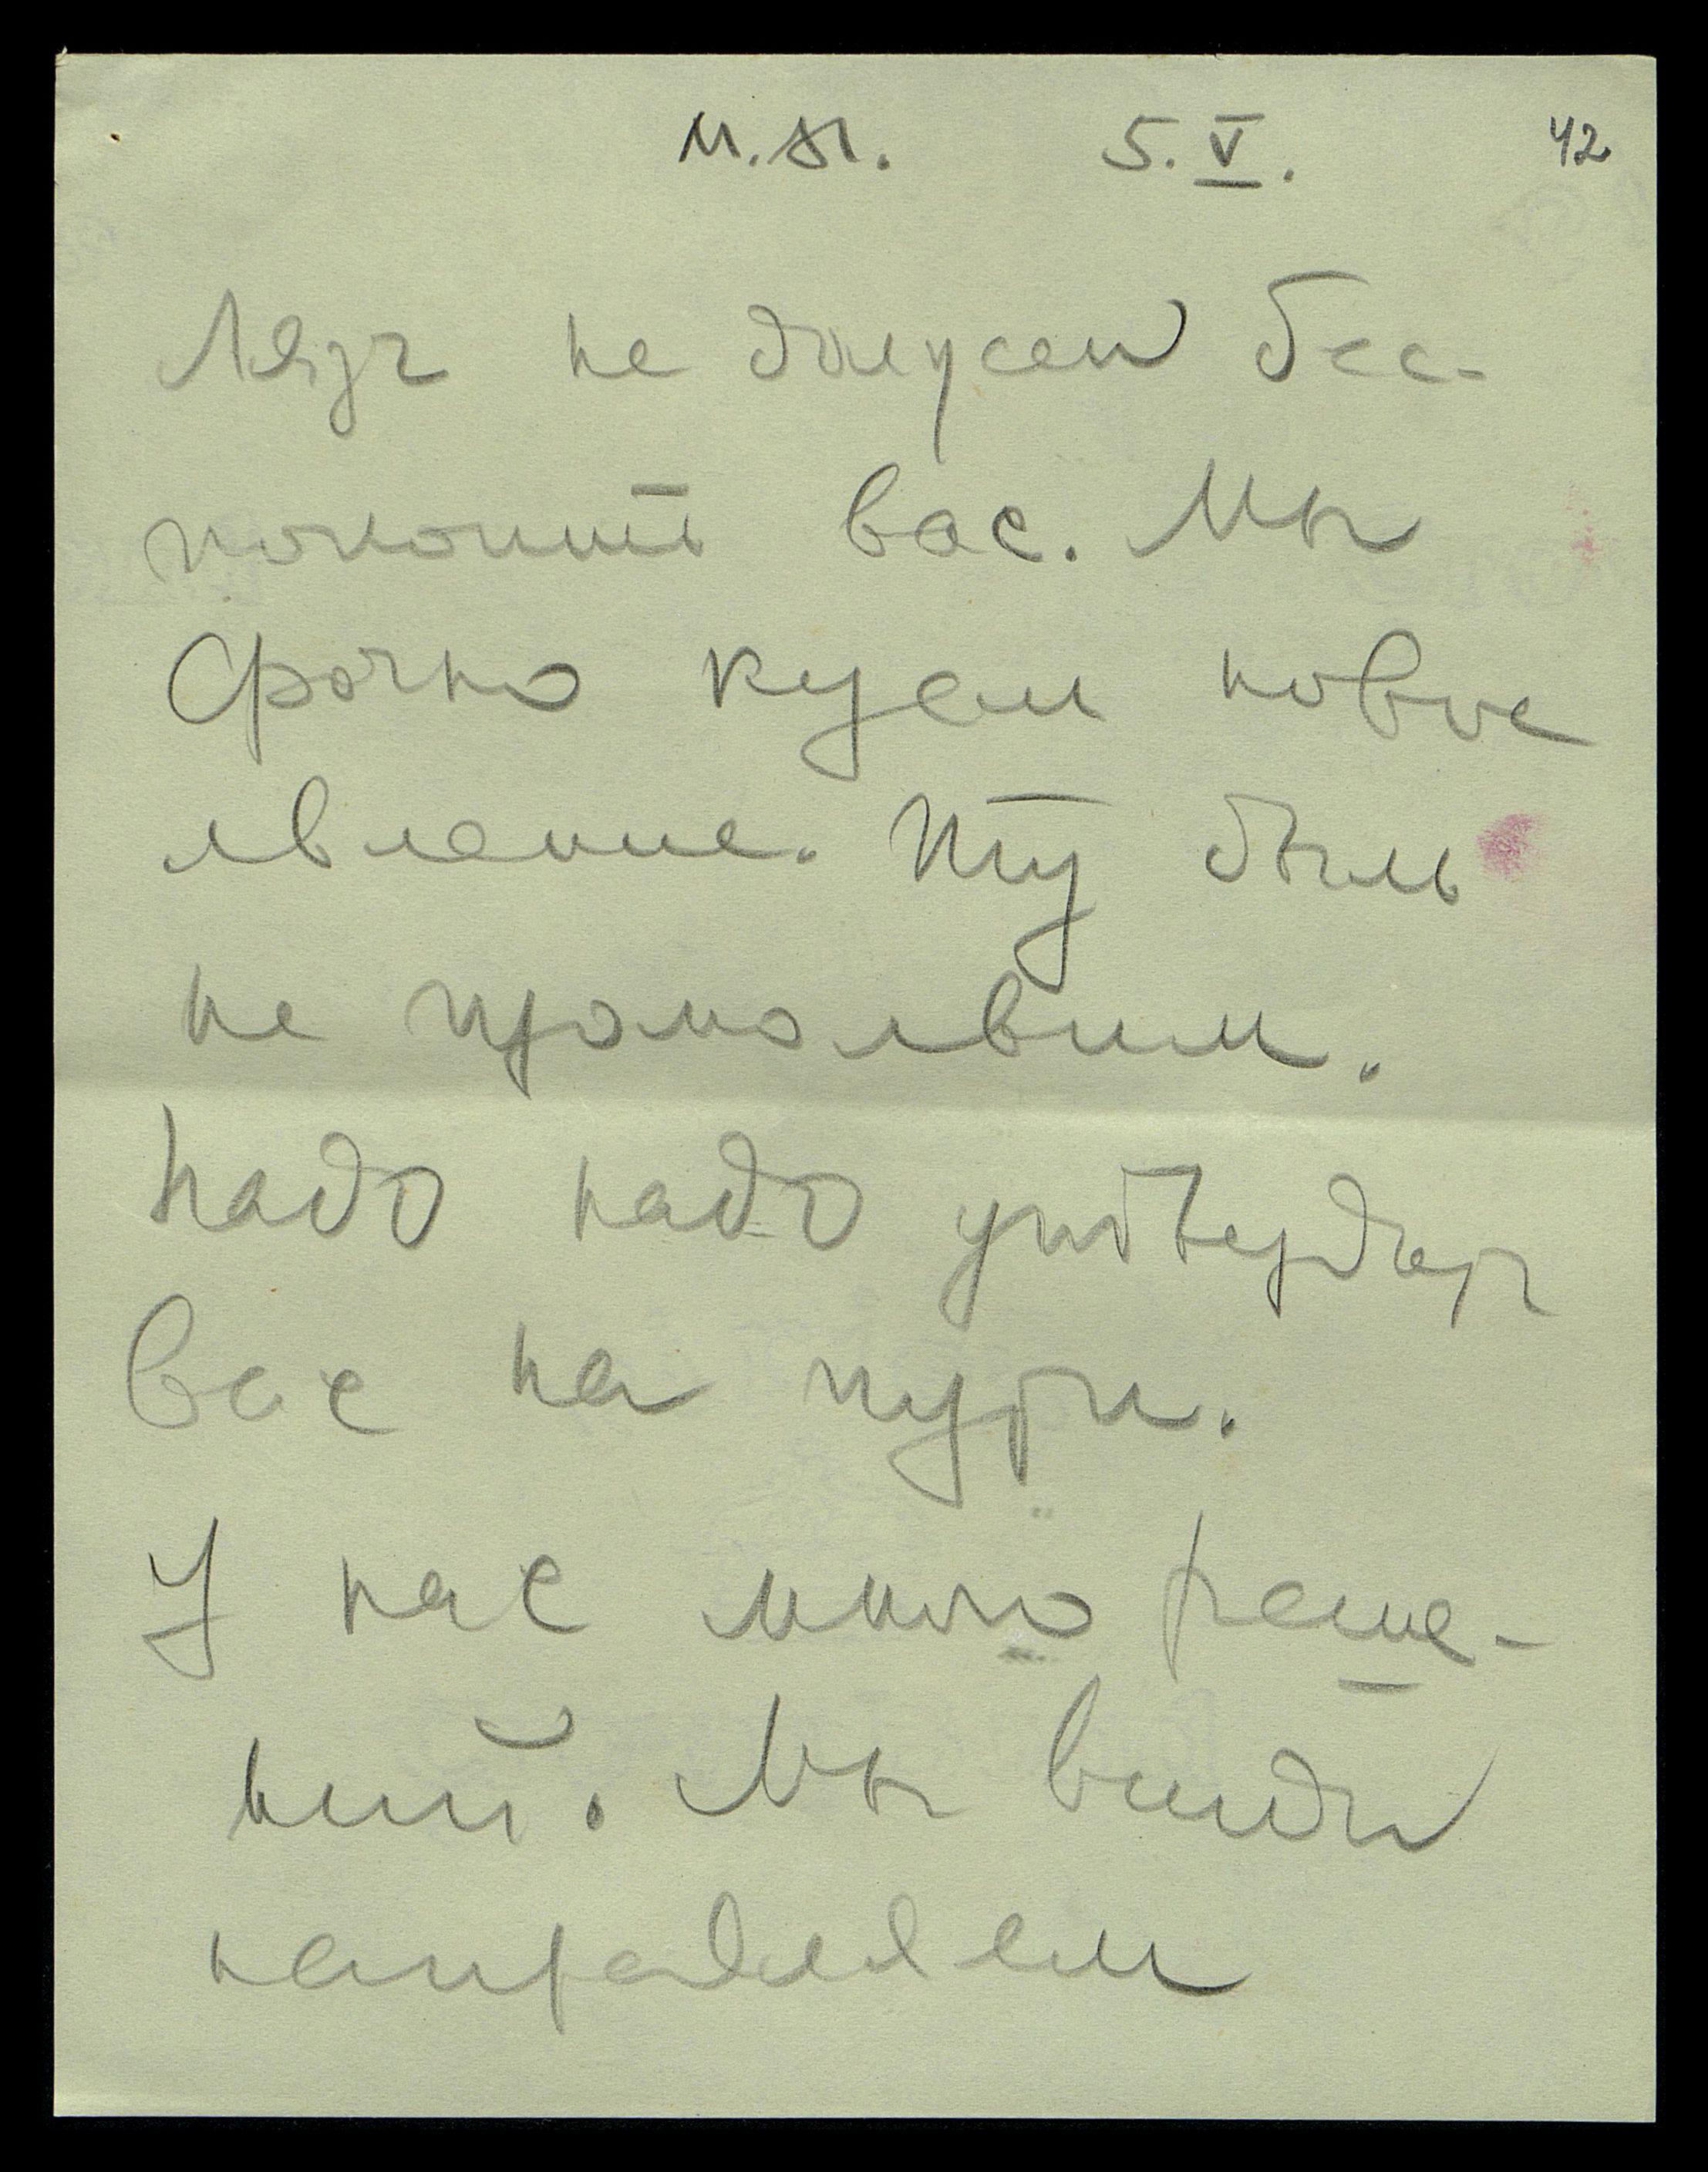 М.М. 5.V. 42
Лязг не должен бес-
покоить вас. Мы
срочно куем новое
явление. Ту быль
не промолвим.
Надо надо утвердить
вас на пути.
У нас много реше-
ний. Мы виды
направляем